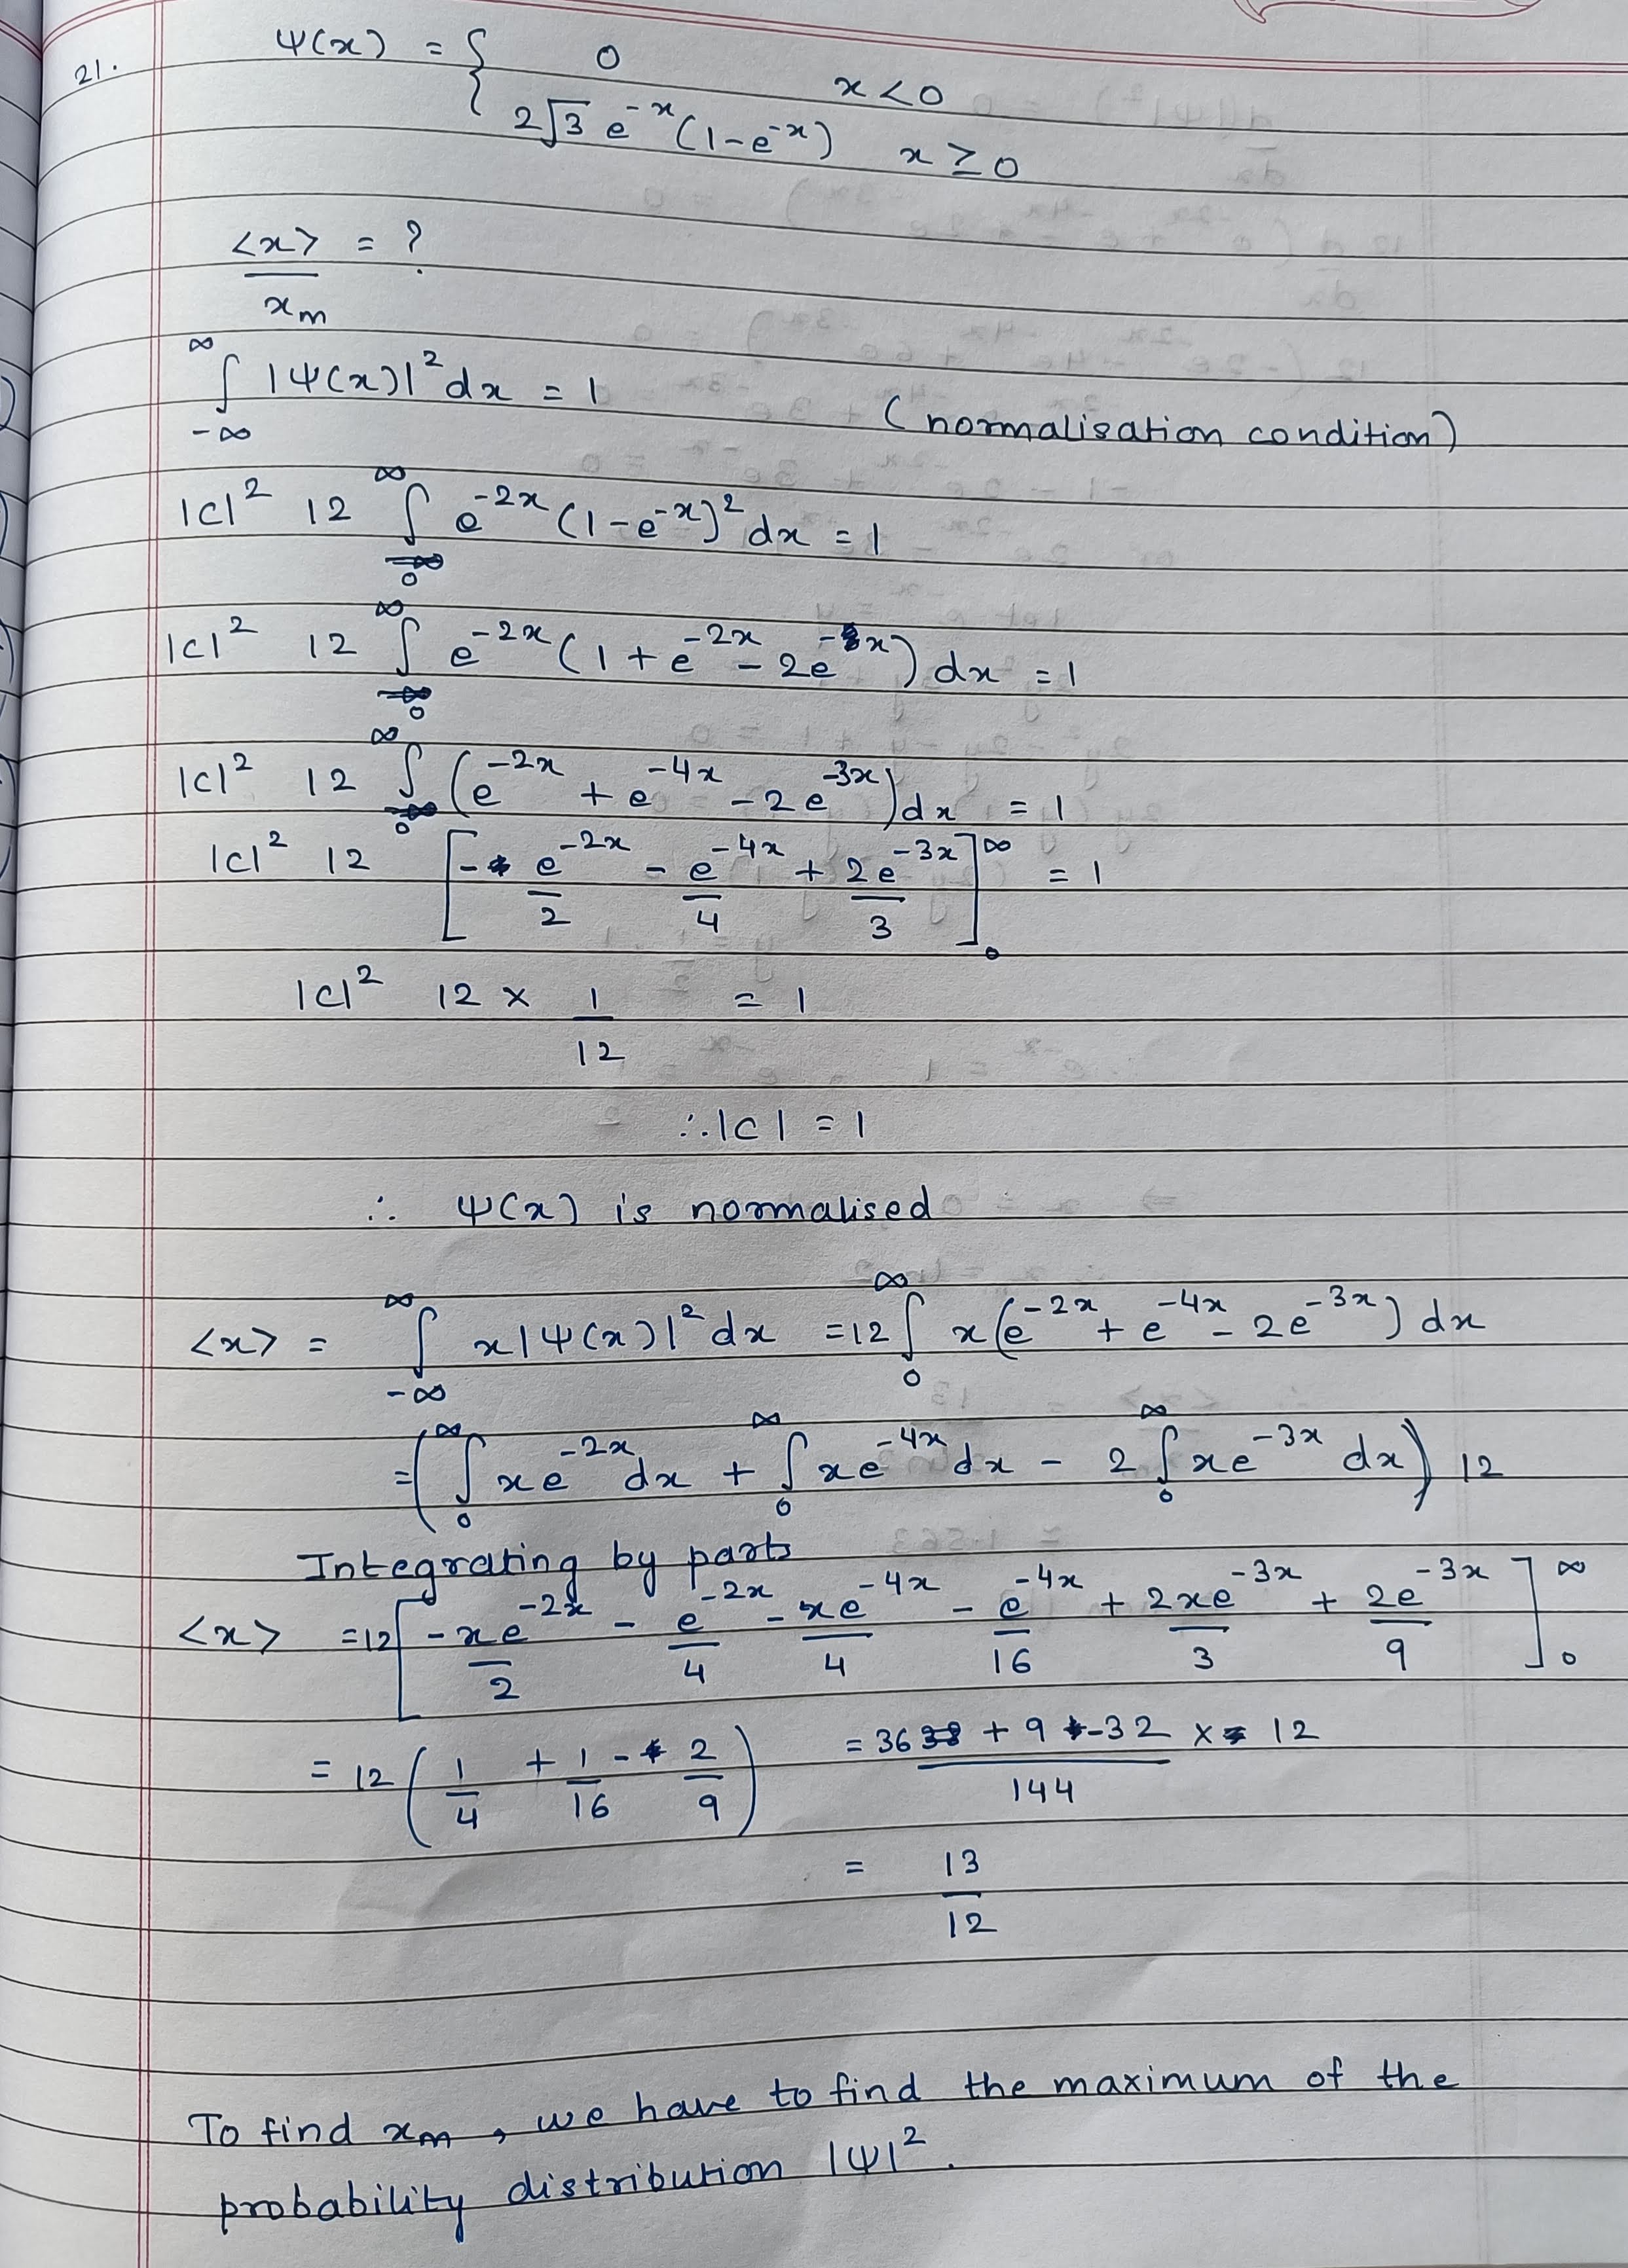 21. Ψ(x) = { 0 x < 0
2√3 e^-x (1-e^-x) x ≥ 0
<x> / x_m = ?
∫_-∞^∞ |Ψ(x)|² dx = 1 (normalisation condition)
|c|² 12 ∫_0^∞ e^-2x (1-e^-x)² dx = 1
|c|² 12 ∫_0^∞ e^-2x (1 + e^-2x - 2e^-x) dx = 1
|c|² 12 ∫_0^∞ (e^-2x + e^-4x - 2e^-3x) dx = 1
|c|² 12 [ - e^-2x/2 - e^-4x/4 + 2e^-3x/3 ]_0^∞ = 1
|c|² 12 × 1/12 = 1
∴ |c| = 1
∴ Ψ(x) is normalised
<x> = ∫_-∞^∞ x|Ψ(x)|² dx = 12 ∫_0^∞ x(e^-2x + e^-4x - 2e^-3x) dx
= ( ∫_0^∞ xe^-2x dx + ∫_0^∞ xe^-4x dx - 2 ∫_0^∞ xe^-3x dx ) 12
Integrating by parts
<x> = 12 [ - xe^-2x/2 - e^-2x/4 - xe^-4x/4 - e^-4x/16 + 2xe^-3x/3 + 2e^-3x/9 ]_0^∞
= 12 ( 1/4 + 1/16 - 2/9 ) = (36 + 9 - 32)/144 × 12
= 13/12
To find x_m, we have to find the maximum of the
probability distribution |Ψ|².